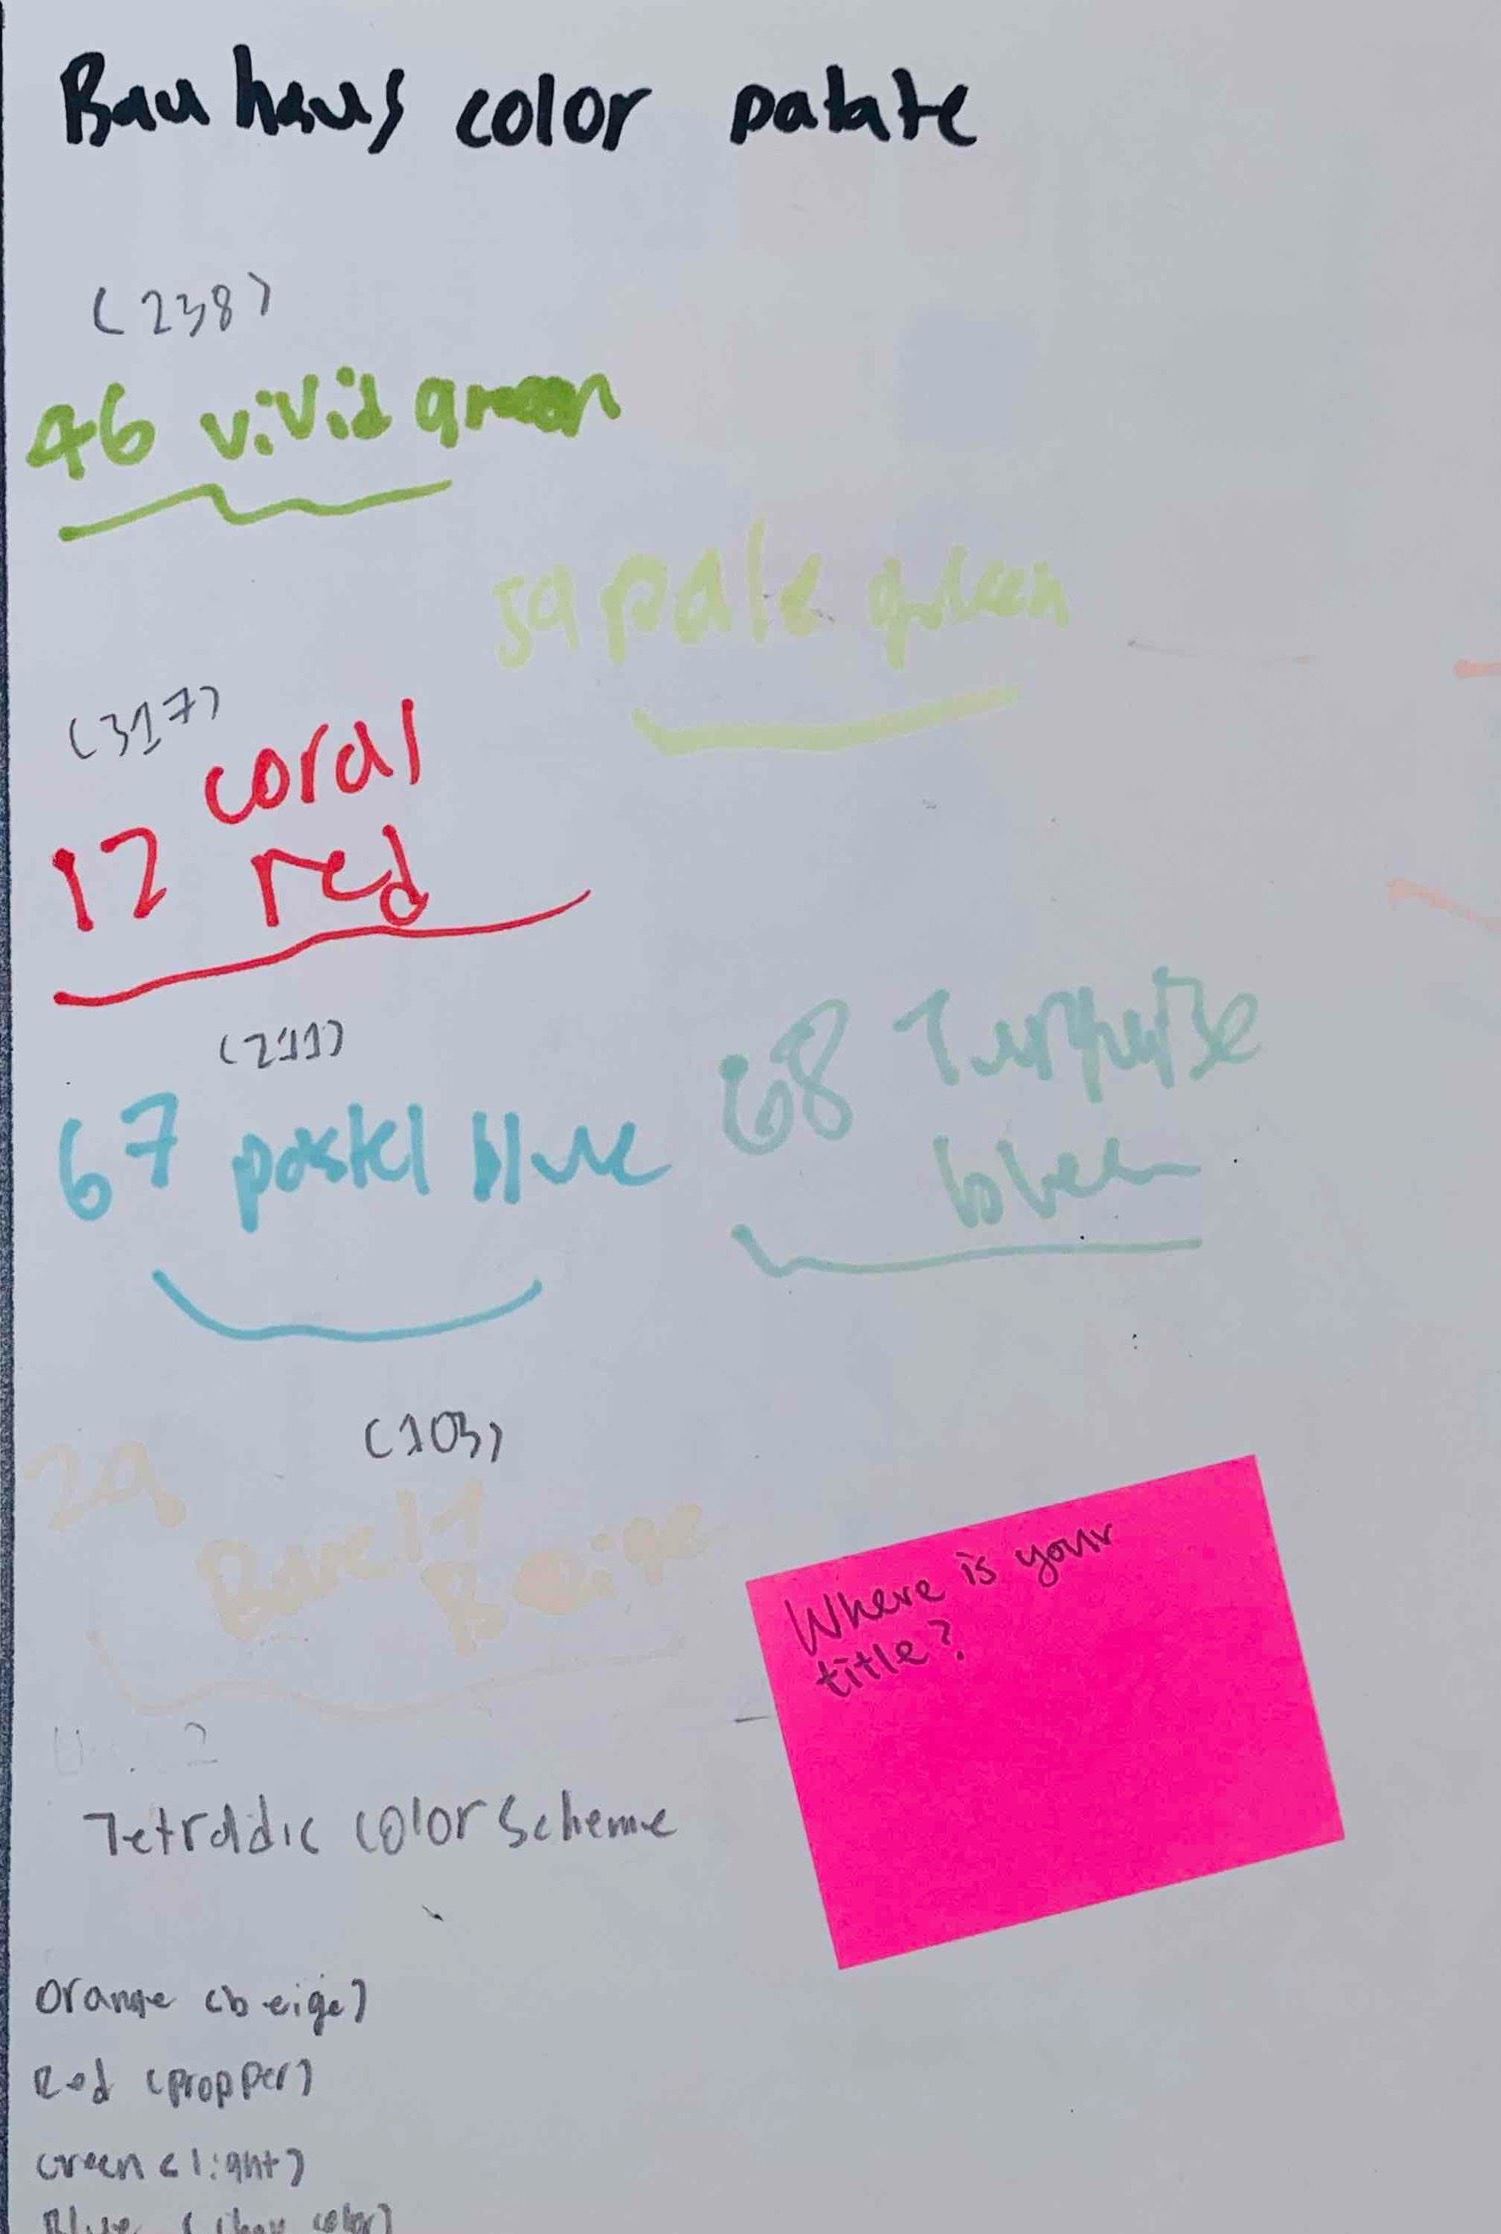 Bauhaus color palate
(238)
46 vivid green
59 pale green
(317)
coral
12 red
(211)
67 pastel blue
68 Turquoise
(103)
29
Barely
Beige
Where is your
title?
2
Tetradic color scheme
Orange (beige)
Red (propper)
Green (light)
Blue color)